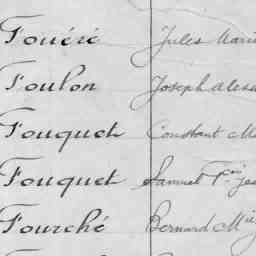 Fouéré Jules Marie
Foulon Joseph Alexa
Fouquet Constant M
Fouquet Samuel Fçois Je
Fourché Bernard M